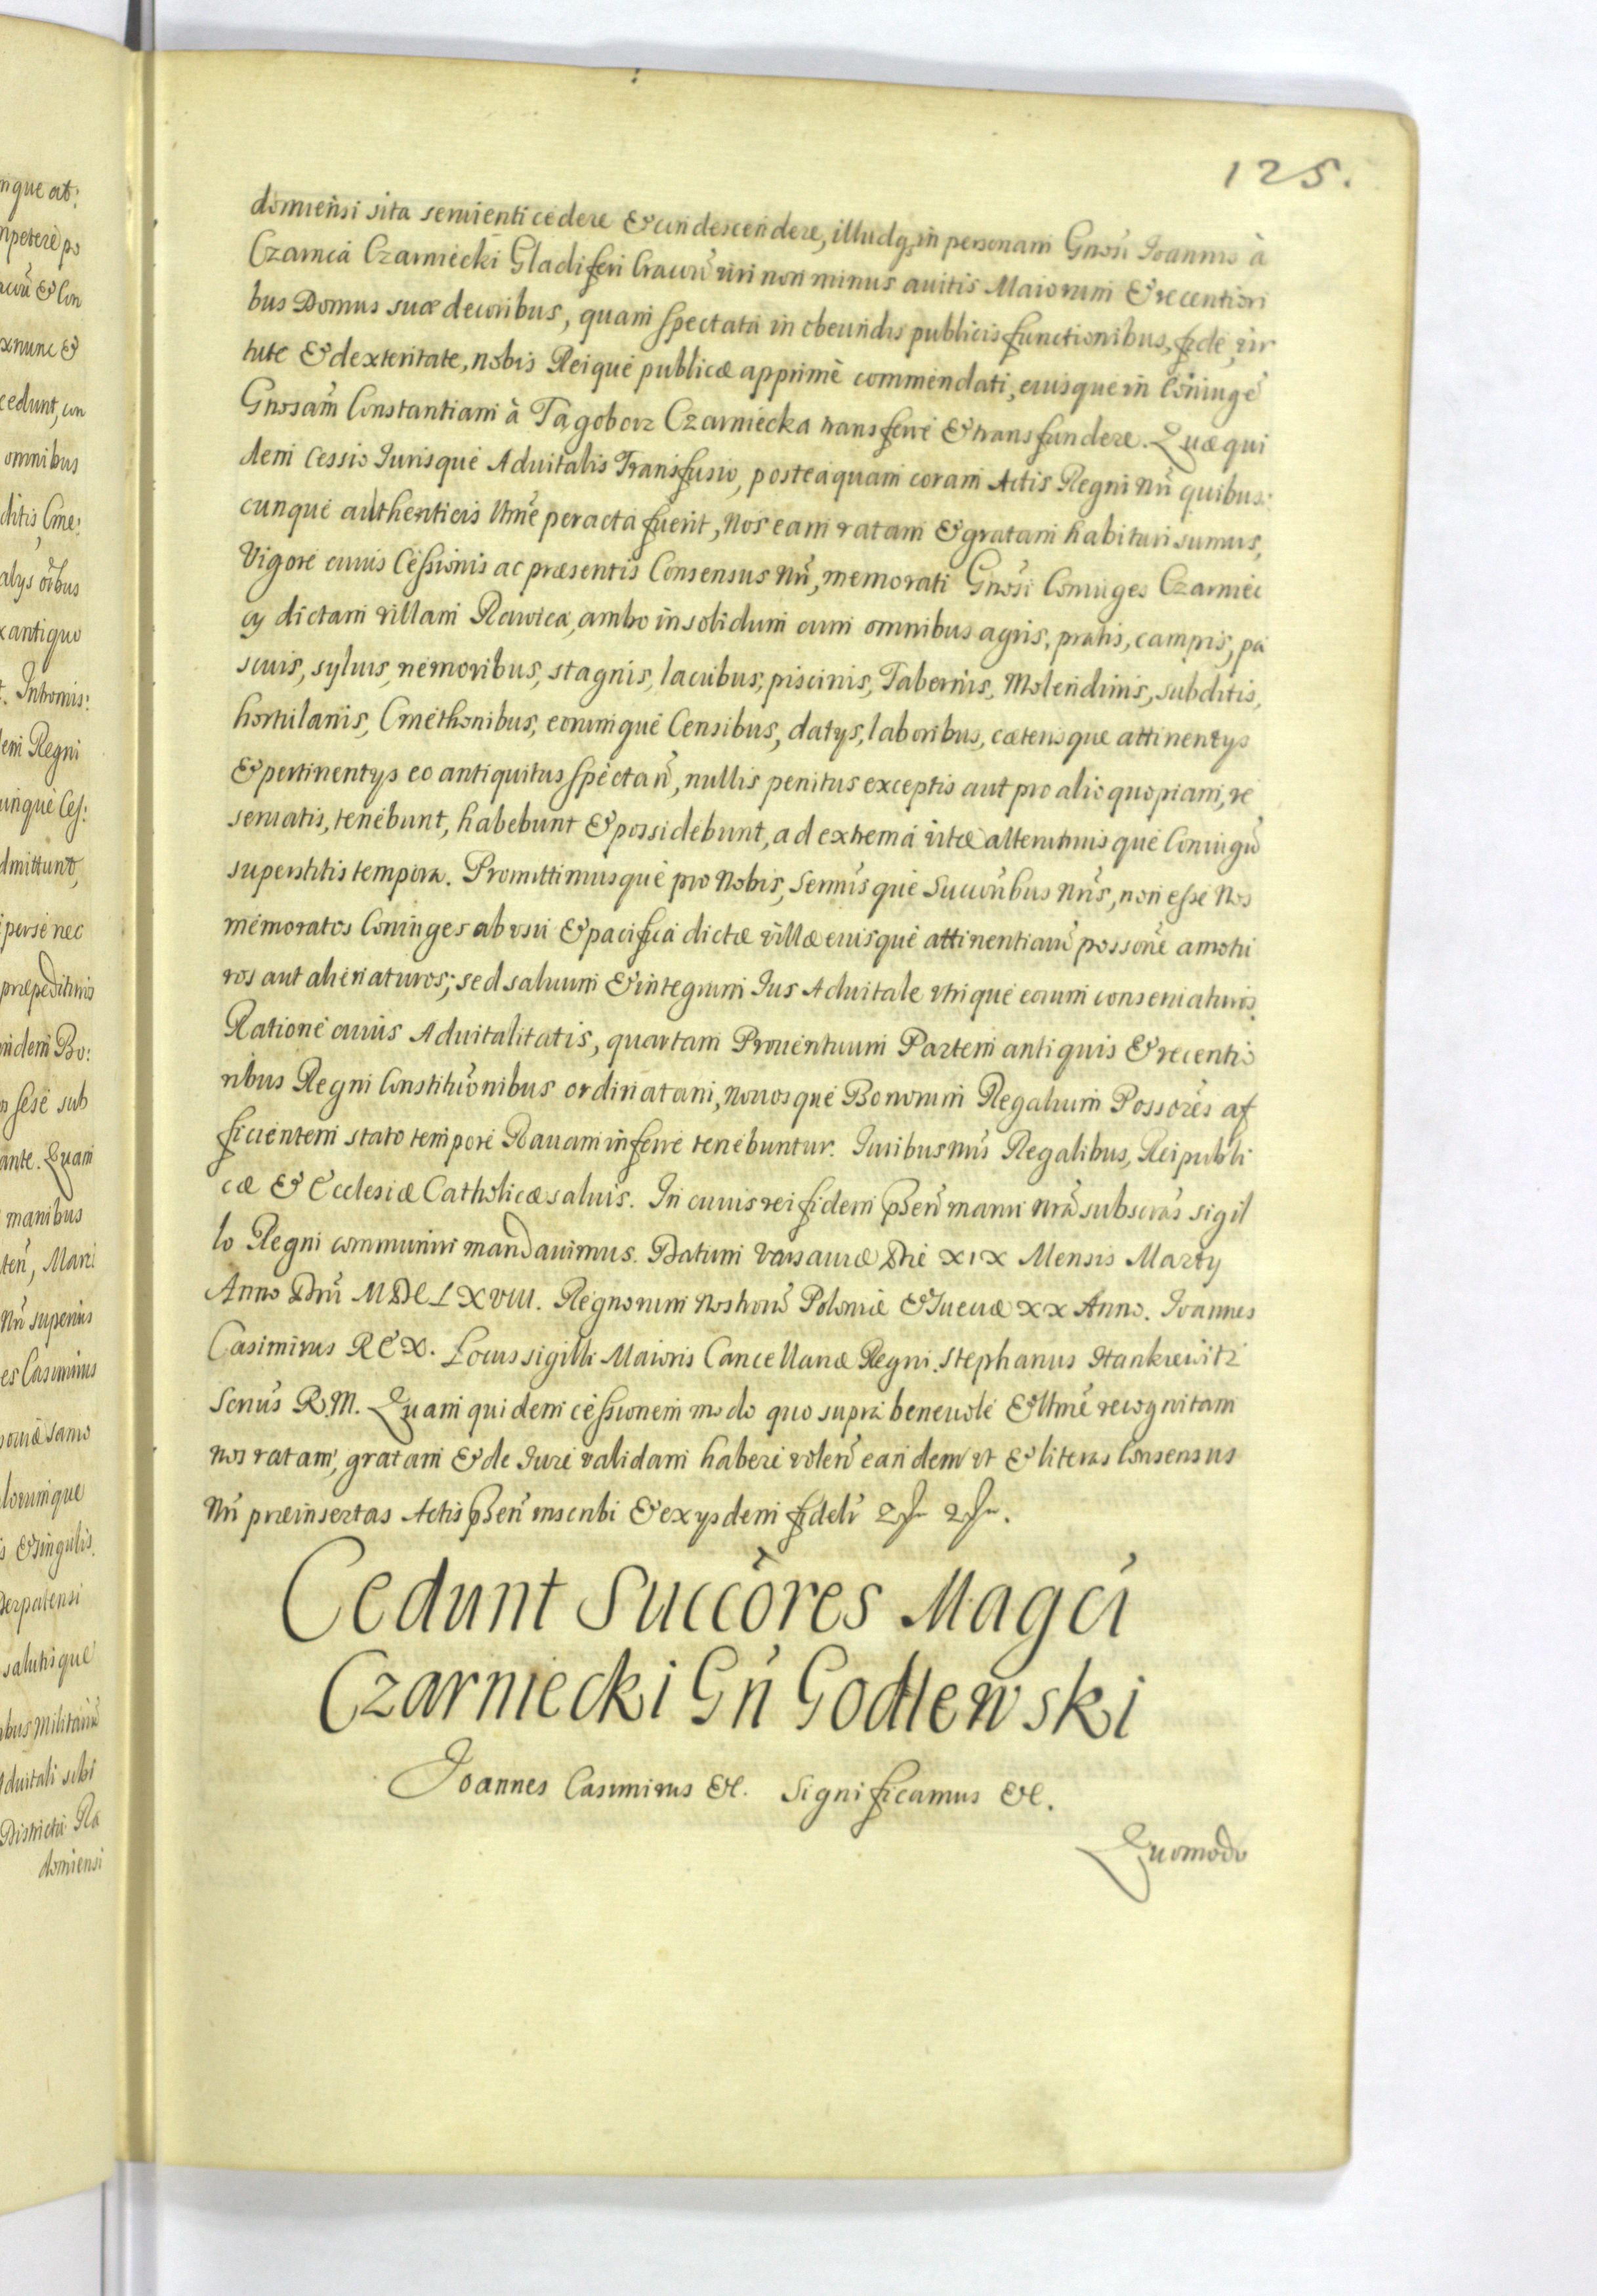 125.
domiensi sita servienti cedere & condescendere, illudq3 in personam Gnosi Ioannis à
Czarnca Czarniecki Gladiferi Cracon̄ viri non minus avitis Maiorum & recentiori
bus Domus suæ decoribus, quam spectata in obeundis publicis functionibus, fide, vir
tute & dexteritate, nobis Reique publicæ apprimè commendati, eiusque in Coniugē
Gnosam̄ Constantiam à Tągoborz Czarniecka transferre & transfundere. Quæ qui
dem Cessio Iurisque Aduitalis Transfusio, posteaquam coram Actis Regni Nrī quibus:
cunque authenticis ltmē peracta fuerit, Nos eam ratam & gratam habituri sumus,
Vigore cuius Cessionis ac præsentis Consensus Nrī, memorati Gnosi Coniuges Czarniec
cy dictam villam Rawica, ambo in solidum cum omnibus agris, pratis, campis, pa
scuis, syluis, nemoribus, stagnis, lacubus, piscinis, Tabernis, Molendinis, subditis,
hortulanis, Cmethonibus, eorumque Censibus, datys, laboribus, cæterisque attinentys
& pertinentys eo antiquitus spectan̄, nullis penitus exceptis aut pro alio quopiam, re
seruatis, tenebunt, habebunt & possidebunt, ad extrema vitæ alterutriusque Coniugū
superstitis tempora. Promittimusque pro Nobis, Sermis que Succoribus Nris, non esse Nos
memoratos Coniuges ab vsu & pacifica dictæ villæ eiusque attinentiarū possone amotu
ros aut alienaturos; sed saluum & integrum Ius Aduitale vtrique eorum conseruaturos.
Ratione cuius Aduitalitatis, quartam Prouentuum Partem antiquis & recentio
ribus Regni Constitu͞onibus ordinatam, nouosque Bonorum Regalium Possores af
ficientem stato tempore Rauam inferre tenebuntur. Iuribus nris Regalibus, Reipubli
cæ & Ecclesiæ Catholicæ saluis. In cuius rei fidem p͞sen̄ manu nrā subscras sigil
lo Regni communiri mandauimus. Datum Varsauiæ Die XIX Mensis Marty
Anno Dnī MDCLXVIII. Regnorum Nostrorū Poloniæ & Sueciæ XX Anno. Ioannes
Casimirus REX. Locus sigilli Maioris Cancellariæ Regni. Stephanus Hankiewitz
Scrius R.M. Quam quidem cessionem modo quo supra beneuole & ltmē recognitam
nos ratam, gratam & de Iure validam habere volen̄ eandem vt & literas Consensus
Nrī præinsertas Actis p͞sen̄ inscribi & ex ysdem fidelr
Cedunt Succōres Magcī
Czarniecki Gn̄ Godlewski
Ioannes Casimirus &c. Significamus &c.
Quomodo